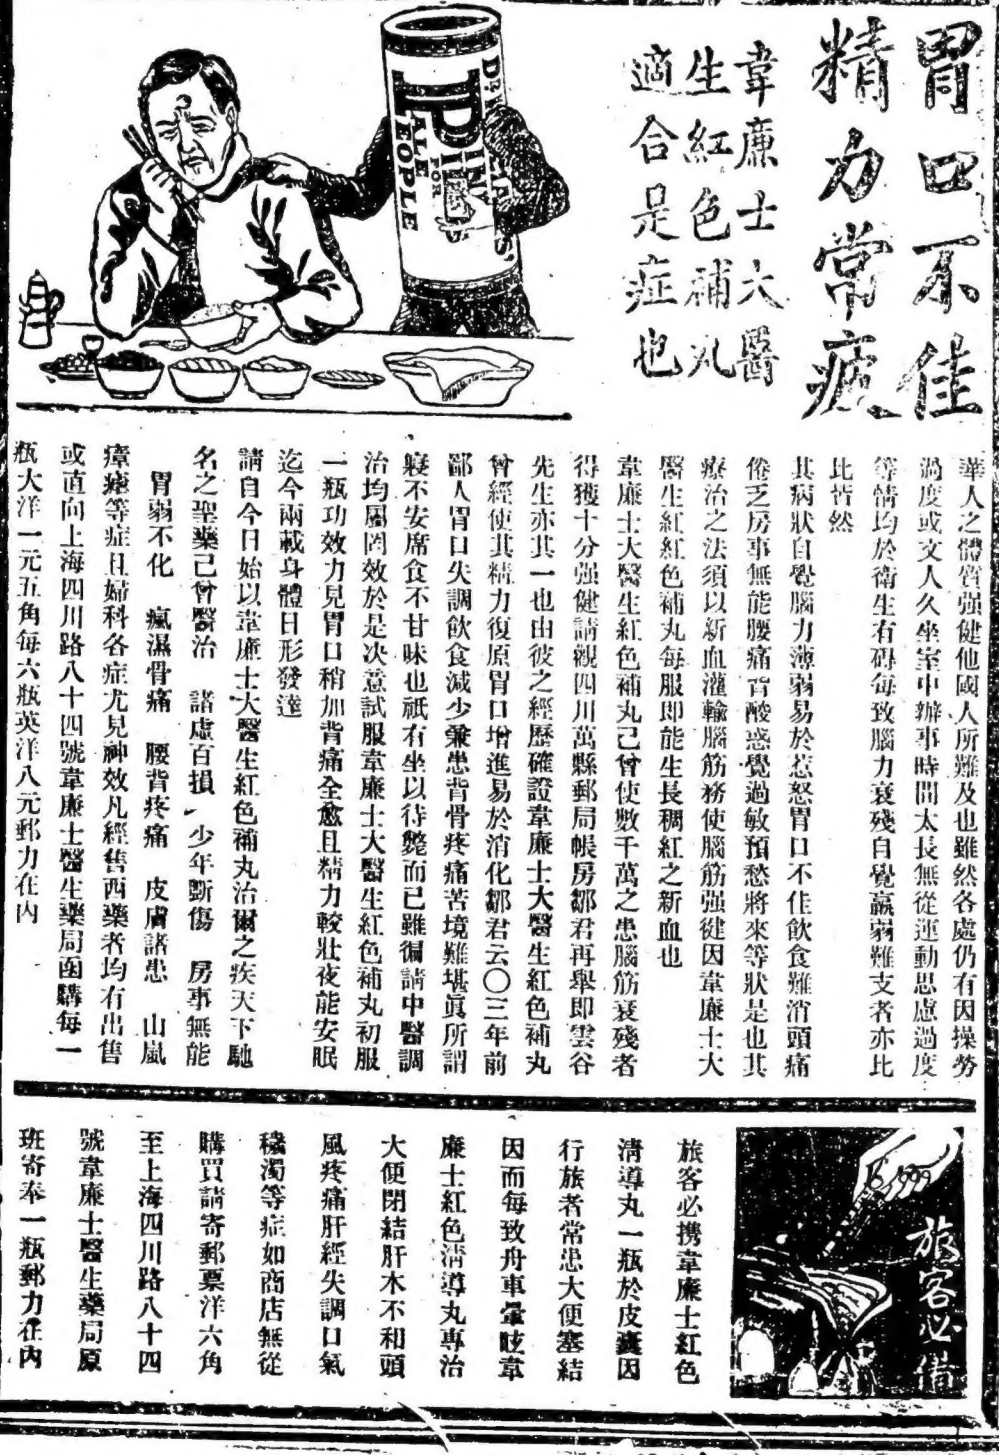 胃口不佳
精力常疲
韋廉士大醫
生紅色補丸
適合是症也
DR WILLIAMS'
PINK
PILLS
FOR
PALE
PEOPLE
華人之體質强健他國人所難及也雖然各處仍有因操勞
過度或文人久坐室中辦事時間太長無從運動思慮過度
等情均於衛生有碍每致腦力衰殘自覺羸弱難支者亦比
比皆然
其病狀自覺腦力薄弱易於惹怒胃口不佳飲食難消頭痛
倦乏房事無能腰痛背酸惑覺過敏預愁將來等狀是也其
療治之法須以新血灌輸腦筋務使腦筋强健因韋廉士大
醫生紅紅色補丸每服即能生長稠紅之新血也
韋廉士大醫生紅色補丸已曾使數千萬之患腦筋衰殘者
得獲十分强健請觀四川萬縣郵局帳房鄒君再舉即雲谷
先生亦其一也由彼之經歷確證韋廉士大醫生紅色補丸
曾經使其精力復原胃口增進易於消化鄒君云〇三年前
鄙人胃口失調飲食減少兼患背骨疼痛苦境難堪眞所謂
寢不安席食不甘味也祇有坐以待斃而已雖徧請中醫調
治均屬罔效於是决意試服韋廉士大醫生紅色補丸初服
一瓶功效力見胃口稍加背痛全愈且精力較壯夜能安眠
迄今兩載身體日形發達
請自今日始以韋廉士大醫生紅色補丸治爾之疾天下馳
名之聖藥已曾醫治 諸虛百損 少年斷傷 房事無能
胃弱不化 瘋濕骨痛 腰背疼痛 皮膚諸患 山嵐
瘴瘧等症且婦科各症尤見神效凡經售西藥者均有出售
或直向上海四川路八十四號韋廉士醫生藥局函購每一
瓶大洋一元五角每六瓶英洋八元郵力在內
旅客必備
旅客必携韋廉士紅色
清導丸一瓶於皮囊因
行旅者常患大便塞結
因而每致舟車暈眩韋
廉士紅色清導丸專治
大便閉結肝木不和頭
風疼痛肝經失調口氣
穢濁等症如商店無從
購買請寄郵票洋六角
至上海四川路八十四
號韋廉士醫生藥局原
班寄奉一瓶郵力在內